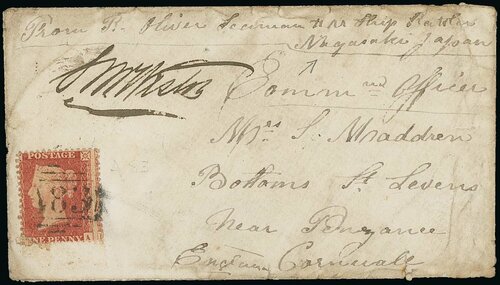 From R. Oliver Seaman H M Ship
Nagasaki Japan
Comm nd Officer
Mrs S. Maddren
Bottoms St Levens
Near Penzance
England Cornwall
POSTAGE
ONE PENNY A